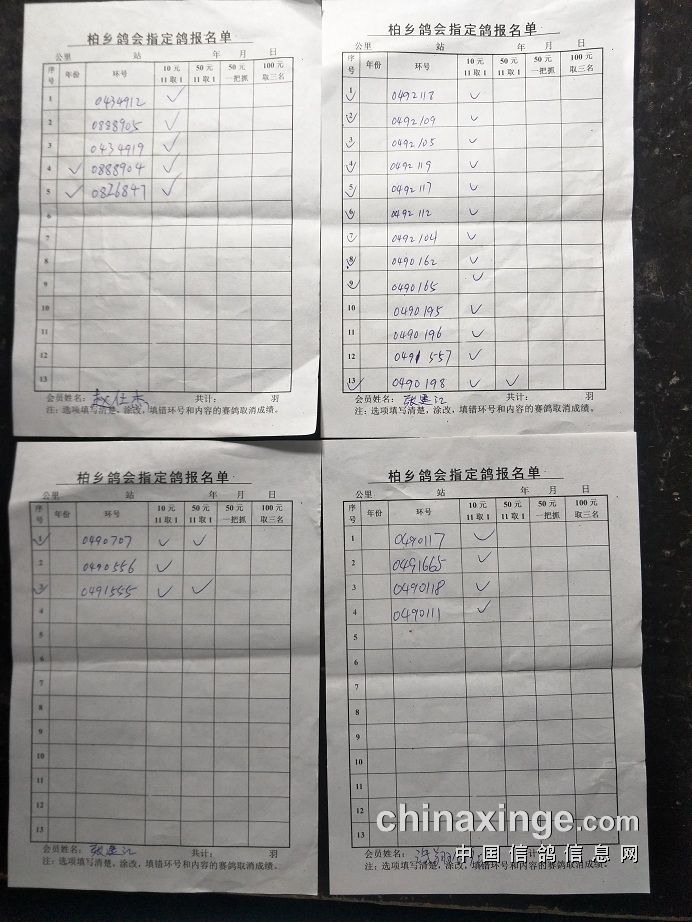 柏乡鸽会指定鸽报名单
公里 站 年 月 日
序号 年份 环号 10元 11取1 50元 11取1 50元 一把抓 100元 取三名
1 0434912 ✓
2 0888905 ✓
3 0434919 ✓
4 ✓ 0888904 ✓
5 ✓ 0826847 ✓
6
7
8
9
10
11
12
13
会员姓名: 赵仕杰 共计: 羽
注:选项填写清楚,涂改,填错环号和内容的赛鸽取消成绩。
柏乡鸽会指定鸽报名单
公里 站 年 月 日
序号 年份 环号 10元 11取1 50元 11取1 50元 一把抓 100元 取三名
1 ✓ 0492118 ✓
2 ✓ 0492109 ✓
3 ✓ 0492105 ✓
4 ✓ 0492119 ✓
5 ✓ 0492117 ✓
6 ✓ 0492112 ✓
7 ✓ 0492104 ✓
8 ✓ 0490162 ✓
9 ✓ 0490165 ✓
10 0490195 ✓
11 0490196 ✓
12 0491557 ✓
13 ✓ 0490198 ✓ ✓
会员姓名: 张建江 共计: 羽
注:选项填写清楚,涂改,填错环号和内容的赛鸽取消成绩。
柏乡鸽会指定鸽报名单
公里 站 年 月 日
序号 年份 环号 10元 11取1 50元 11取1 50元 一把抓 100元 取三名
1 ✓ 0490707 ✓ ✓
2 0490556 ✓
3 ✓ 0491555 ✓ ✓
4
5
6
7
8
9
10
11
12
13
会员姓名: 张建江 共计: 羽
注:选项填写清楚,涂改,填错环号和内容的赛鸽取消成绩。
柏乡鸽会指定鸽报名单
公里 站 年 月 日
序号 年份 环号 10元 11取1 50元 11取1 50元 一把抓 100元 取三名
1 0490117 ✓
2 0491665 ✓
3 0490118 ✓
4 0490111 ✓
5
6
7
8
9
10
11
12
13
chinaxinge.com
会员姓名:
中国信鸽信息网
注:选项填写清楚,涂改,填错环号和内容的赛鸽取消成绩。